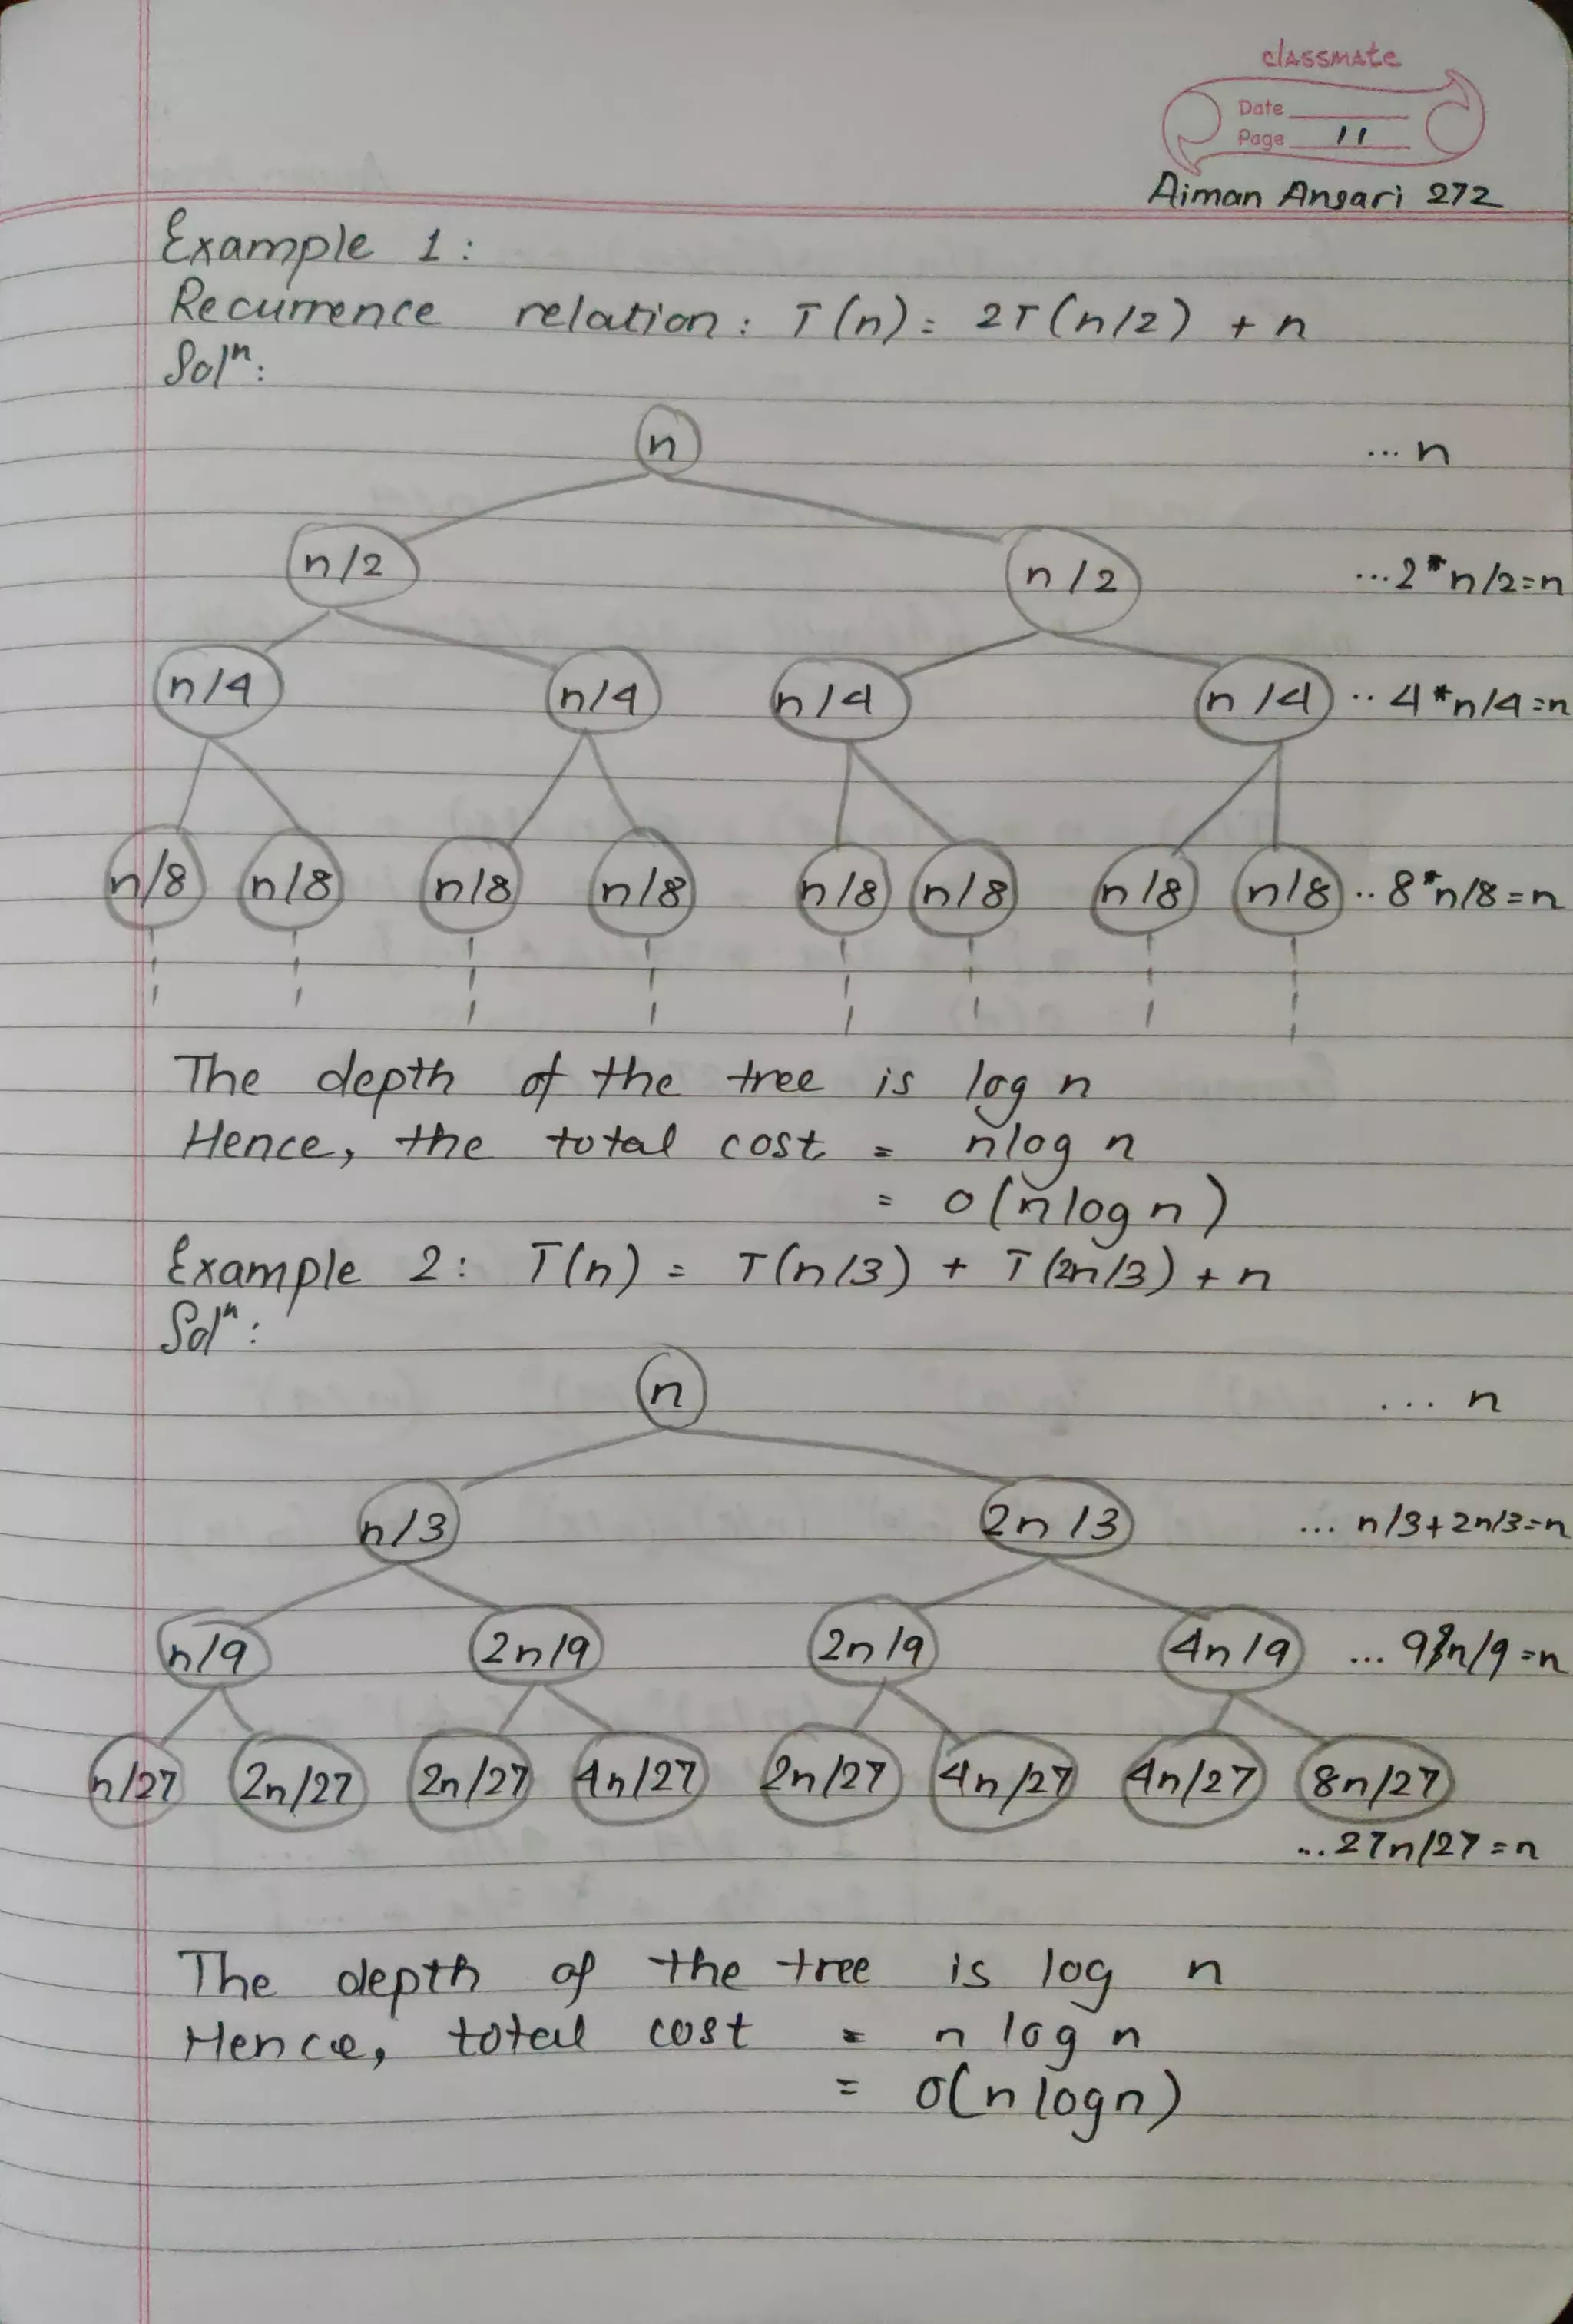 classmate
Date
Page 11
Aiman Ansari 272
Example 1:
Recurrence relation: T(n) = 2T(n/2) + n
Solⁿ:
n ... n
n/2 n/2 ...2*n/2=n
n/4 n/4 n/4 n/4 .. 4*n/4=n
n/8 n/8 n/8 n/8 n/8 n/8 n/8 n/8 .. 8*n/8=n
The depth of the tree is log n
Hence, the total cost = nlog n
= O(nlogn)
Example 2: T(n) = T(n/3) + T(2n/3) + n
Solⁿ:
n ... n
n/3 2n/3 ... n/3+2n/3=n
n/9 2n/9 2n/9 4n/9 ... 9n/9=n
n/27 2n/27 2n/27 4n/27 2n/27 4n/27 4n/27 8n/27
...27n/27=n
The depth of the tree is log n
Hence, total cost = n log n
= O(nlogn)